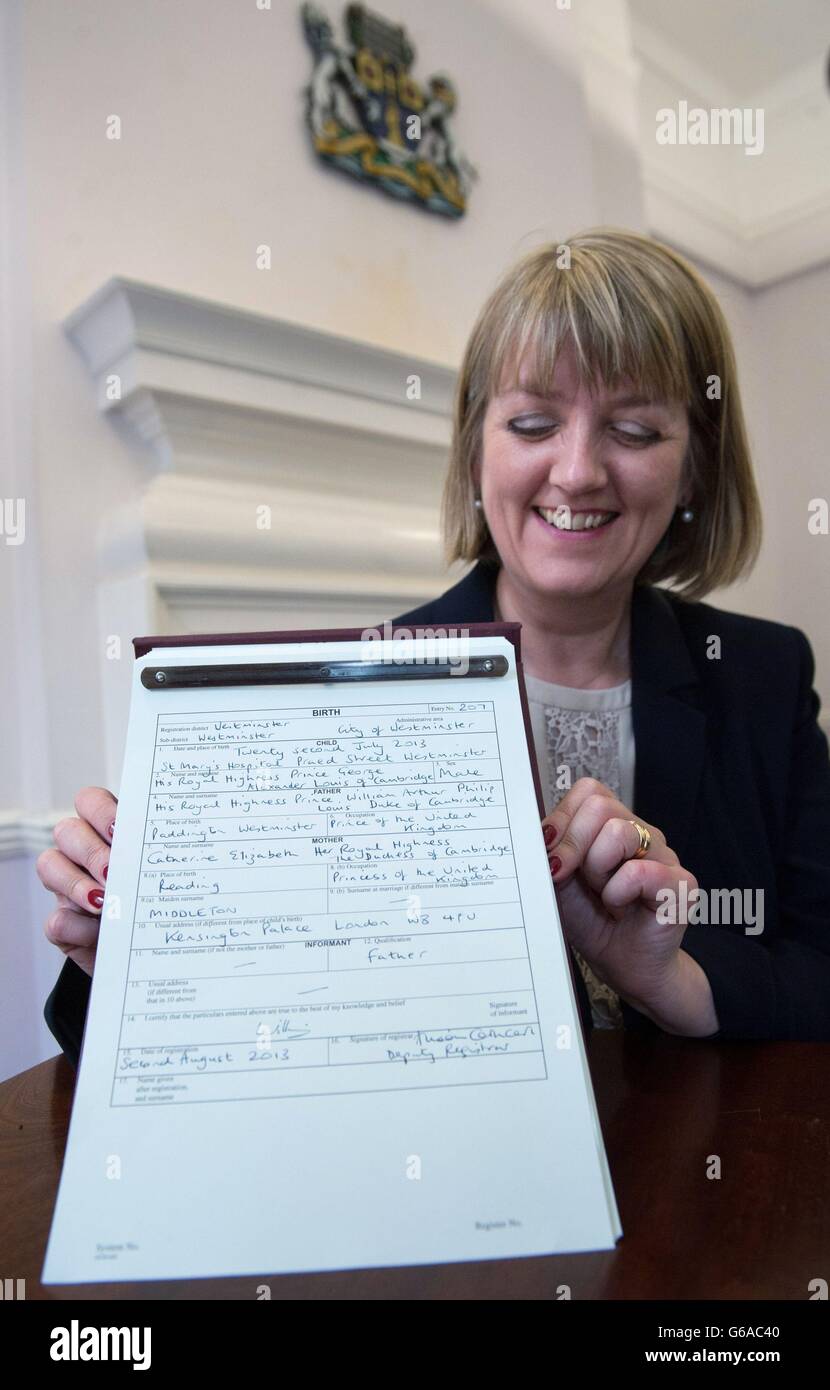 BIRTH Entry No. 207
Registration district Westminster Administrative area
Sub district Westminster City of Westminster
1. Date and place of birth CHILD
Twenty second July 2013
St Mary's Hospital Praed Street Westminster
2. Name and surname 3. Sex
His Royal Highness Prince George Male
Alexander Louis of Cambridge
4. Name and surname FATHER
His Royal Highness Prince William Arthur Philip
Louis Duke of Cambridge
5. Place of birth 6. Occupation
Paddington Westminster Prince of the United
Kingdom
7. Name and surname MOTHER
Catherine Elizabeth Her Royal Highness
the Duchess of Cambridge
8.(a) Place of birth 8.(b) Occupation
Reading Princess of the United
Kingdom
9.(a) Maiden surname 9.(b) Surname at marriage if different from maiden surname
MIDDLETON —
10. Usual address (if different from place of child's birth)
Kensington Palace London W8 4PU
11. Name and surname (if not the mother or father) INFORMANT 12. Qualification
— Father
13. Usual address
(if different from
that in 10 above) —
14. I certify that the particulars entered above are true to the best of my knowledge and belief Signature
of informant
15. Date of registration 16. Signature of registrar
Second August 2013 Deputy Registrar
17. Name given
after registration,
and surname
System No. Register No.
alamy
alamy
Image ID: G6AC40
www.alamy.com